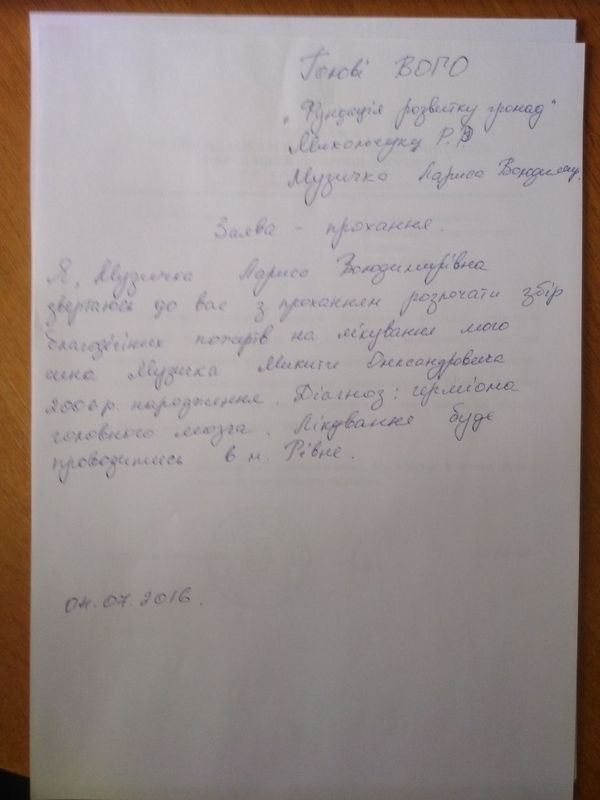 Голові ВОГО
"Фундація розвитку громад"
Михальчуку Р.Р
Музичко Лариса Володимир.
Заява - прохання.
Я, Музичка Лариса Володимирівна
звертаюсь до вас з проханням розпочати збір
благодійних пожертв на лікування мого
сина Музичка Микити Олександровича
2006 р. народження. Діагноз: герміома
головного мозга. Лікування буде
проводитись в м. Рівне.
04.07.2016.